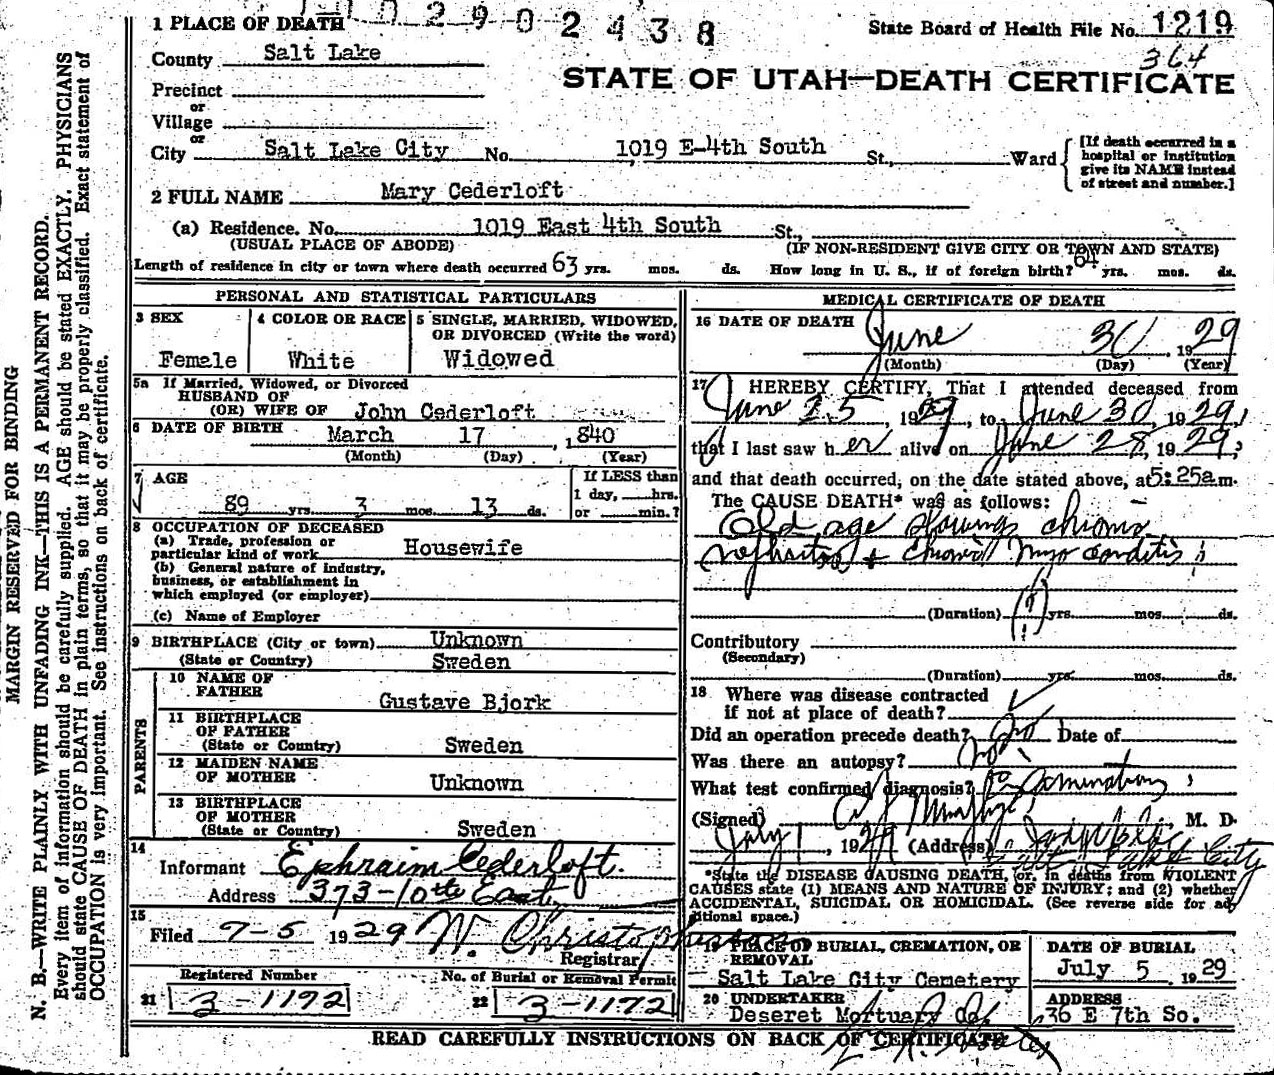 1 PLACE OF DEATH 0 2 9 0 2 4 3 8 State Board of Health File No. 1219
364
County Salt Lake
STATE OF UTAH—DEATH CERTIFICATE
Precinct
or
Village
or
City Salt Lake City No. 1019 E-4th South St., Ward
[If death occurred in a hospital or institution give its NAME instead of street and number.]
2 FULL NAME Mary Cederloft
(a) Residence. No. 1019 East 4th South St.,
(USUAL PLACE OF ABODE) (IF NON-RESIDENT GIVE CITY OR TOWN AND STATE)
Length of residence in city or town where death occurred 63 yrs. mos. ds. How long in U. S., if of foreign birth? 64 yrs. mos. ds.
PERSONAL AND STATISTICAL PARTICULARS
3 SEX 4 COLOR OR RACE 5 SINGLE, MARRIED, WIDOWED,
OR DIVORCED (Write the word)
Female White Widowed
5a If Married, Widowed, or Divorced
HUSBAND OF
(OR) WIFE OF John Cederloft
6 DATE OF BIRTH March 17, 1840
(Month) (Day) (Year)
7 AGE If LESS than
1 day, hrs.
89 yrs. 3 mos. 13 ds. or min.?
8 OCCUPATION OF DECEASED
(a) Trade, profession or
particular kind of work Housewife
(b) General nature of industry,
business, or establishment in
which employed (or employer)
(c) Name of Employer
9 BIRTHPLACE (City or town) Unknown
(State or Country) Sweden
PARENTS
10 NAME OF
FATHER Gustave Bjork
11 BIRTHPLACE
OF FATHER
(State or Country) Sweden
12 MAIDEN NAME
OF MOTHER Unknown
13 BIRTHPLACE
OF MOTHER
(State or Country) Sweden
14
Informant Ephraim Cederloft.
Address 373-10th East.
15
Filed 7-5 1929 W. Christopherson
Registrar
Registered Number No. of Burial or Removal Permit
21 3-1192 22 3-1172
MEDICAL CERTIFICATE OF DEATH
16 DATE OF DEATH June 30, 1929
(Month) (Day) (Year)
17 I HEREBY CERTIFY, That I attended deceased from
June 25, 1929, to June 30, 1929,
that I last saw her alive on June 28, 1929,
and that death occurred, on the date stated above, at 5:25a m.
The CAUSE DEATH* was as follows:
Old age chronic
nephritis +
(Duration) yrs. mos. ds.
Contributory
(Secondary)
(Duration) yrs. mos. ds.
18 Where was disease contracted
if not at place of death?
Did an operation precede death? no Date of
Was there an autopsy? no
What test confirmed diagnosis?
(Signed) Murphy, M. D.
July 1, 1929 (Address)
Salt Lake City
*State the DISEASE CAUSING DEATH, or, in deaths from VIOLENT
CAUSES state (1) MEANS AND NATURE OF INJURY; and (2) whether
ACCIDENTAL, SUICIDAL OR HOMICIDAL. (See reverse side for ad-
ditional space.)
19 PLACE OF BURIAL, CREMATION, OR
REMOVAL
Salt Lake City Cemetery
DATE OF BURIAL
July 5, 1929
20 UNDERTAKER
Deseret Mortuary Co.
ADDRESS
36 E 7th So.
READ CAREFULLY INSTRUCTIONS ON BACK OF CERTIFICATE
MARGIN RESERVED FOR BINDING
N. B.—WRITE PLAINLY WITH UNFADING INK—THIS IS A PERMANENT RECORD.
Every item of information should be carefully supplied. AGE should be stated EXACTLY. PHYSICIANS
should state CAUSE OF DEATH in plain terms, so that it may be properly classified. Exact statement of
OCCUPATION is very important. See instructions on back of certificate.